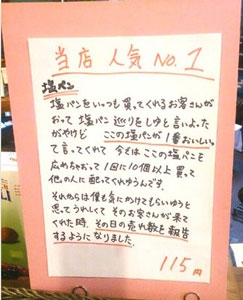 当店 人気 No.1
塩パン
塩パンをいつも買ってくれるお客さんが
おって 塩パン巡りをしゆと言いよっ
たがやけど ここの塩パンが1番おいしい。
て言ってくれて 今では ここの塩パンを
広めちゃおって 1回に10個以上買って
他の人に配ってくれゆうんです。
それからは 僕も気にかけてもらいゆうと
思ってうれしくて そのお客さんが来て
くれた時、その日の売れ数を報告
するようになりました。
115円